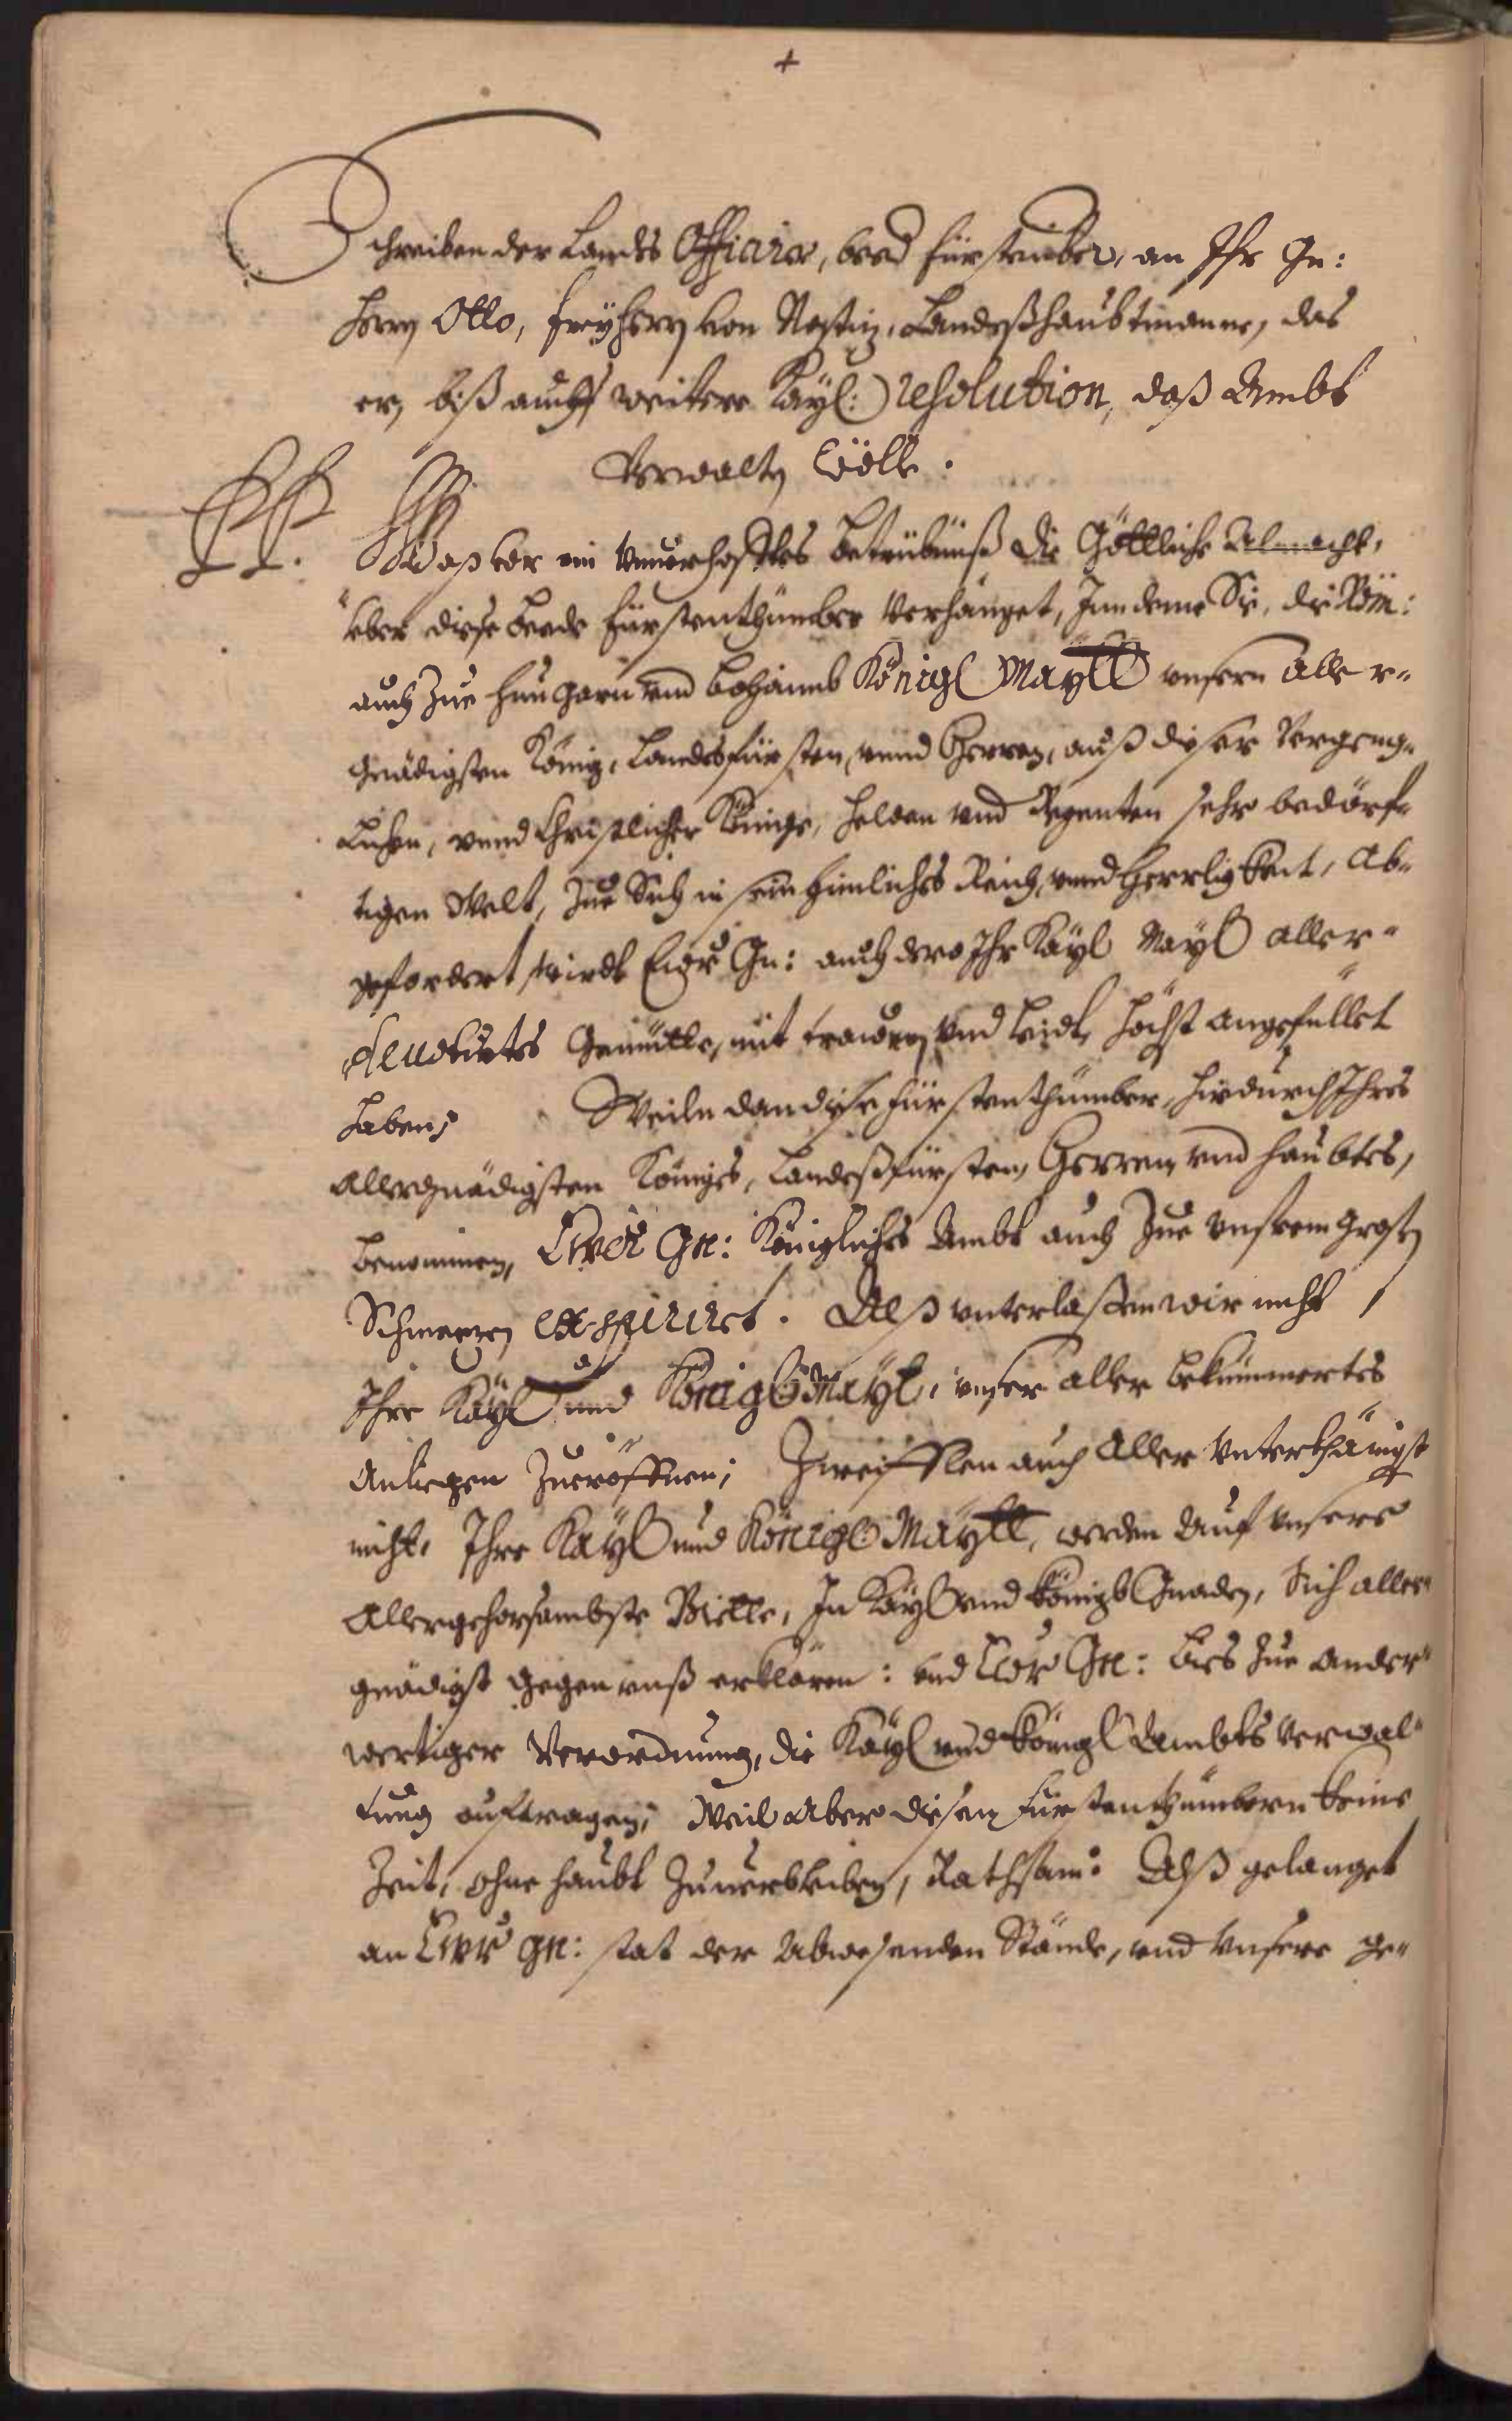 +
Schreiben der Landes Officirer, beed fürstenthüber, an Ihr Gn:
Herrn Otto, freÿherrn von Nostiz, Landeßhaubtmanne, das
er, biß auff weitere Kaÿl: resolution, daß Ambt
Verwalten wölle.
PP. Waß vor ein unuorhofftes betrübnuß die Göttliche Almacht,
über diese beede fürstenthümber verhänget, Inndeme Sie, die Röm:
auch zue Hungarn vnd Böhaimb Königl Maÿtt vnsern aller-
gnädigsten König, Landesfürsten, vnnd Herren, auß dieser vergeng-
lichen, vnnd Christlicher Könige, Helden vnd Regenten sehr bedörf-
tigen Welt, zue Sich in sein himlisches Reich, vnnd Herrligkeit, ab-
gefordert, wirdt Ewr Gn: auch dero Ihr Kaÿl Maÿl aller-
deuotirtes Gemütte, mit trawren vnd leidt, höchst angefüllet
haben; Weiln dan diese fürstenthümber, hierdurch Ihres
Allergnädigsten Königes, Landeßfürsten, Herren, vnd haubtes,
benommen, Ewer Gn: Königliches Ambt auch zue vnserem grosen
Schmerzen exspiriret. Alß vnterlaßen wir nicht
Ihre Kaÿl vnd Königl Maÿt, vnser aller bekümmertes
Anliegen zueröffnen; Zweifflen auch aller vnterthänigst
nicht, Ihre Kaÿl vnd Königl Maÿtt, werden auf vnsere
Allergehorsambste Bitte, In Kaÿl vnd Königl Gnaden, Sich aller-
gnädigst gegen vnß erklären: vnd Ewr Gn: bies zue ander-
wertiger Verordnung, die Kaÿl vnd Königl Ambts verwal-
tung auftragen; Weil aber diesen Fürstenthümbern keine
Zeit, ohne haubt zuuerbleiben, Rathsam: Alß gelanget
an Ewr Gn: stat der Abwesenden Stände, vnd vnsere ge-